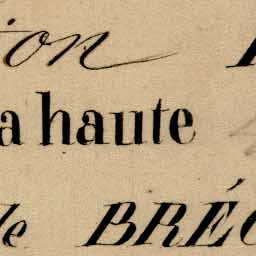 ion
la haute
de BRÉC